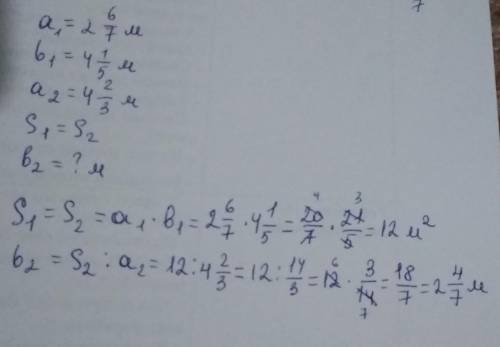 7
a₁ = 2 6/7 м
b₁ = 4 1/5 м
a₂ = 4 2/3 м
S₁ = S₂
b₂ = ? м
S₁ = S₂ = a₁ · b₁ = 2 6/7 · 4 1/5 = 20/7 · 21/5 = 12 м²
b₂ = S₂ : a₂ = 12 : 4 2/3 = 12 : 14/3 = 12 · 3/14 = 18/7 = 2 4/7 м